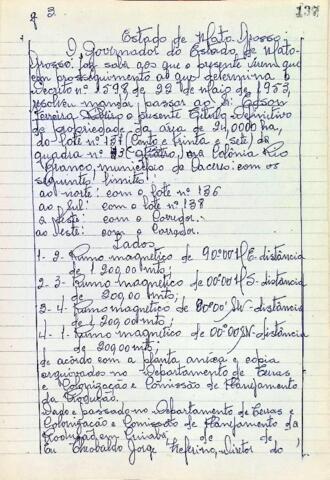 3
137
Estado de Mato Grosso
O Governador do Estado de Mato
Grosso: faz saber aos que o presente virem que
em prosseguimento ao que determina o
Decreto nº 1598 de 22 de Maio de 1953,
resolveu mandar passar ao Sr. Edson
Pereira, o presente Titulo Definitivo
de propriedade da área de 24,0000 ha,
do lote nº 137 (Cento e trinta e sete) da
quadra nº na Colônia Rio
Branco, municipio de Caceres: com os
seguintes limites:
ao norte: com o lote nº 136
ao Sul: com o lote nº 138
a Leste: com o Corredor.
ao oeste: com o Corredor.
Lados
1-2- Rumo magnetico de 90º00'E-distância
de 1.200,00 mts;
2-3- Rumo magnetico de 00º00'S-distância
de 200,00 mts;
3-4- Rumo magnetico de distância
de 1.200,00 mts;
4-1- Rumo magnetico de 00º00'N-distância
de 200,00 mts;
de acordo com a planta anexa e copia
arquivados no Departamento de Terras
e Colonização e Comissão de Planejamento
da Produção.
Dado e passado no Departamento de Terras e
Colonização e Comissão de Planejamento da
Produção, em Cuiabá, de de
Eu Theobaldo Jorge Diretor do